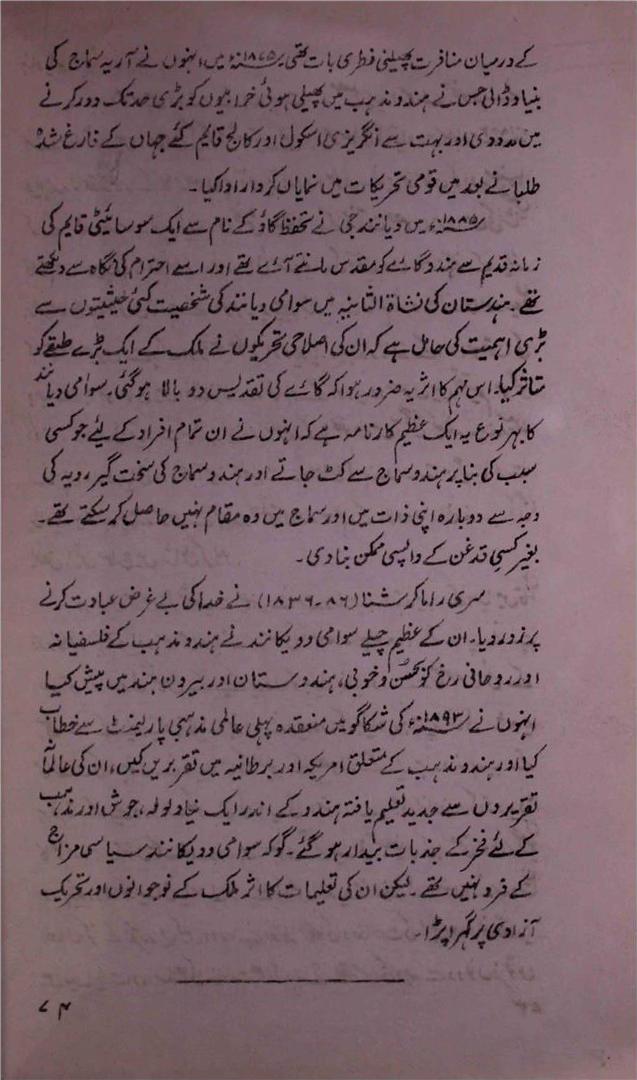 کے درمیان منافرت پھیلنی فطری بات تھی۔ ۱۸۷۵ء میں انہوں نے آریہ سماج کی
بنیاد ڈالی جس نے ہندو مذہب میں پھیلی ہوئی خرابیوں کو بڑی حد تک دور کرنے
میں مدد دی اور بہت سے انگریزی اسکول اور کالج قایم کئے جہاں کے فارغ شدہ
طلبا نے بعد میں قومی تحریکات میں نمایاں کردار ادا کیا۔
۱۸۸۵ء میں دیانند جی نے تحفظ گاؤ کے نام سے ایک سوسائیٹی قایم کی
زمانہ قدیم سے ہندو گائے کو مقدس مانتے آئے تھے اور اسے احترام کی نگاہ سے دیکھتے
تھے۔ ہندستان کی نشاۃ الثانیہ میں سوامی دیانند کی شخصیت کئی حیثیتوں سے
بڑی اہمیت کی حامل ہے کہ ان کی اصلاحی تحریکوں نے ملک کے ایک بڑے طبقے کو
متاثر کیا۔ اس مہم کا اثر یہ ضرور ہوا کہ گائے کی تقدیس دو بالا ہوگئی۔ سوامی دیانند
کا بہر نوع یہ ایک عظیم کارنامہ ہے کہ انہوں نے ان تمام افراد کے لیئے جو کسی
سبب کی بنا پر ہندو سماج سے کٹ جاتے اور ہندو سماج کی سخت گیر رویہ کی
وجہ سے دوبارہ اپنی ذات میں اور سماج میں وہ مقام نہیں حاصل کرسکتے تھے۔
بغیر کسی قدغن کے واپسی ممکن بنا دی۔
سری راما کرشنا (۸۶-۱۸۳۶) نے خدا کی بے غرض عبادت کرنے
پر زور دیا۔ ان کے عظیم چیلے سوامی وویکانند نے ہندو مذہب کے فلسفیانہ
اور روحانی رخ کو بحسن و خوبی، ہندوستان اور بیرون ہند میں پیش کیا
انہوں نے ۱۸۹۳ء کی شکاگو میں منعقدہ پہلی عالمی مذہبی پارلیمنٹ سے خطاب
کیا اور ہندو مذہب کے متعلق امریکہ اور برطانیہ میں تقریریں کیں، ان کی عالمانہ
تقریروں سے جدید تعلیم یافتہ ہندو کے اندر ایک نیا ولولہ، جوش اور مذہب
کے لئے فخر کے جذبات بیدار ہوگئے۔ گو کہ سوامی وویکانند سیاسی مزاج
کے فرد نہیں تھے۔ لیکن ان کی تعلیمات کا اثر ملک کے نوجوانوں اور تحریک
آزادی پر گہرا پڑا
۷۴